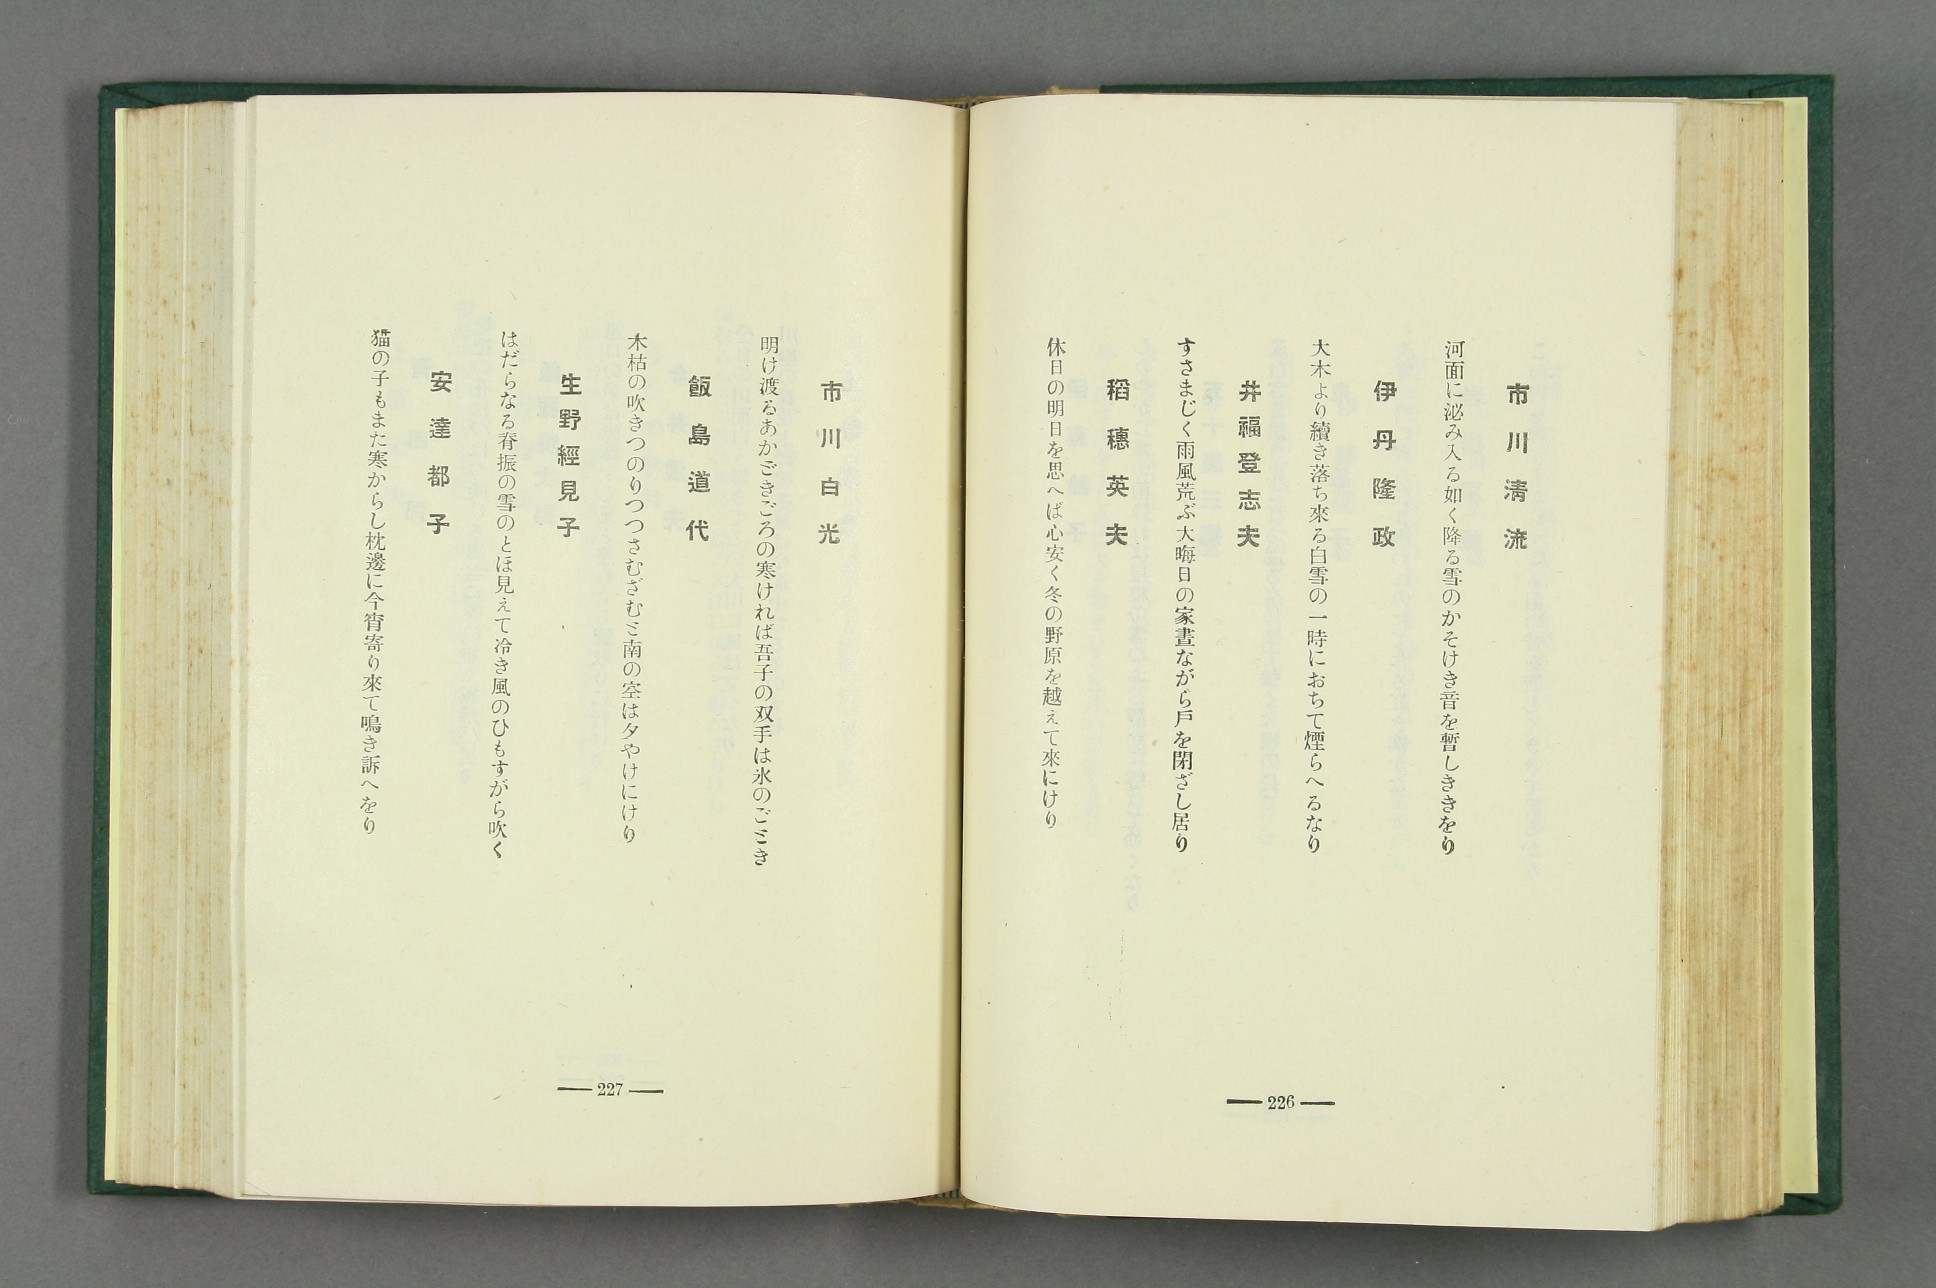 市川清流
河面に泌み入る如く降る雪のかそけき音を暫しききをり
伊丹隆政
大木より續き落ち來る白雪の一時におちて煙らへるなり
井福登志夫
すさまじく雨風荒ぶ大晦日の家晝ながら戸を閉ざし居り
稻穗英夫
休日の明日を思へば心安く冬の野原を越えて來にけり
226
市川白光
明け渡るあかごきごろの寒ければ吾子の双手は氷のごとき
飯島道代
木枯の吹きつのりつつさむざむと南の空は夕やけにけり
生野經見子
はだらなる脊振の雪のとほ見えて冷き風のひもすがら吹く
安達都子
猫の子もまた寒からし枕邊に今宵寄り來て鳴き訴へをり
227